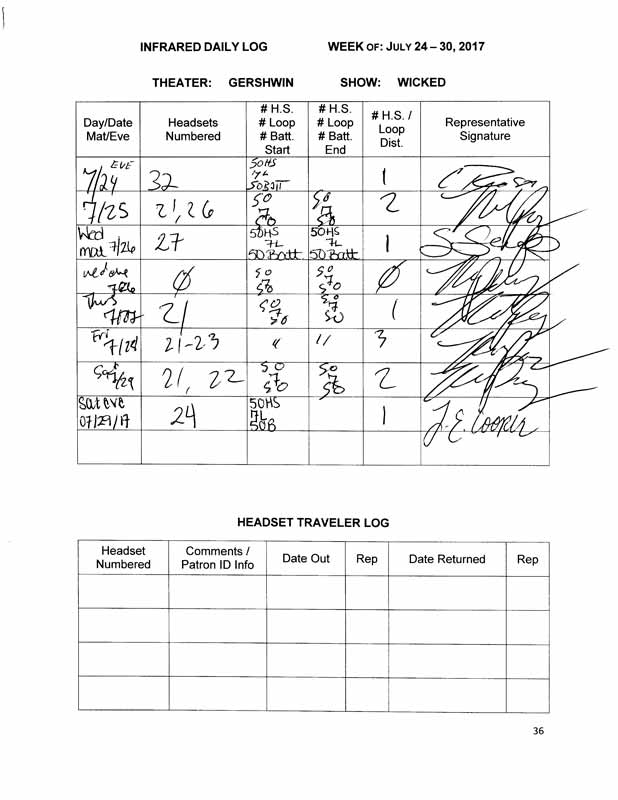 INFRARED DAILY LOG WEEK OF: JULY 24 – 30, 2017
THEATER: GERSHWIN SHOW: WICKED
Day/Date Mat/Eve Headsets Numbered # H.S. # Loop # Batt. Start # H.S. # Loop # Batt. End # H.S. / Loop Dist. Representative Signature
EVE 7/24 32 50HS 7L 50BATT 1
7/25 21, 26 50 7 50 50 7 50 2
Wed mat 7/26 27 50HS 7L 50 Batt 50HS 7L 50 Batt 1
wed eve 7/26 Ø 50 7 50 50 7 50 Ø
Thus 21 50 7 50 50 7 50 1
Fri 7/28 21-23 " " 3
Sat 7/29 21, 22 50 7 50 50 7 50 2
Sat eve 07/29/17 24 50HS 7L 50B 1 J.E. Cooper
HEADSET TRAVELER LOG
Headset Numbered Comments / Patron ID Info Date Out Rep Date Returned Rep
36